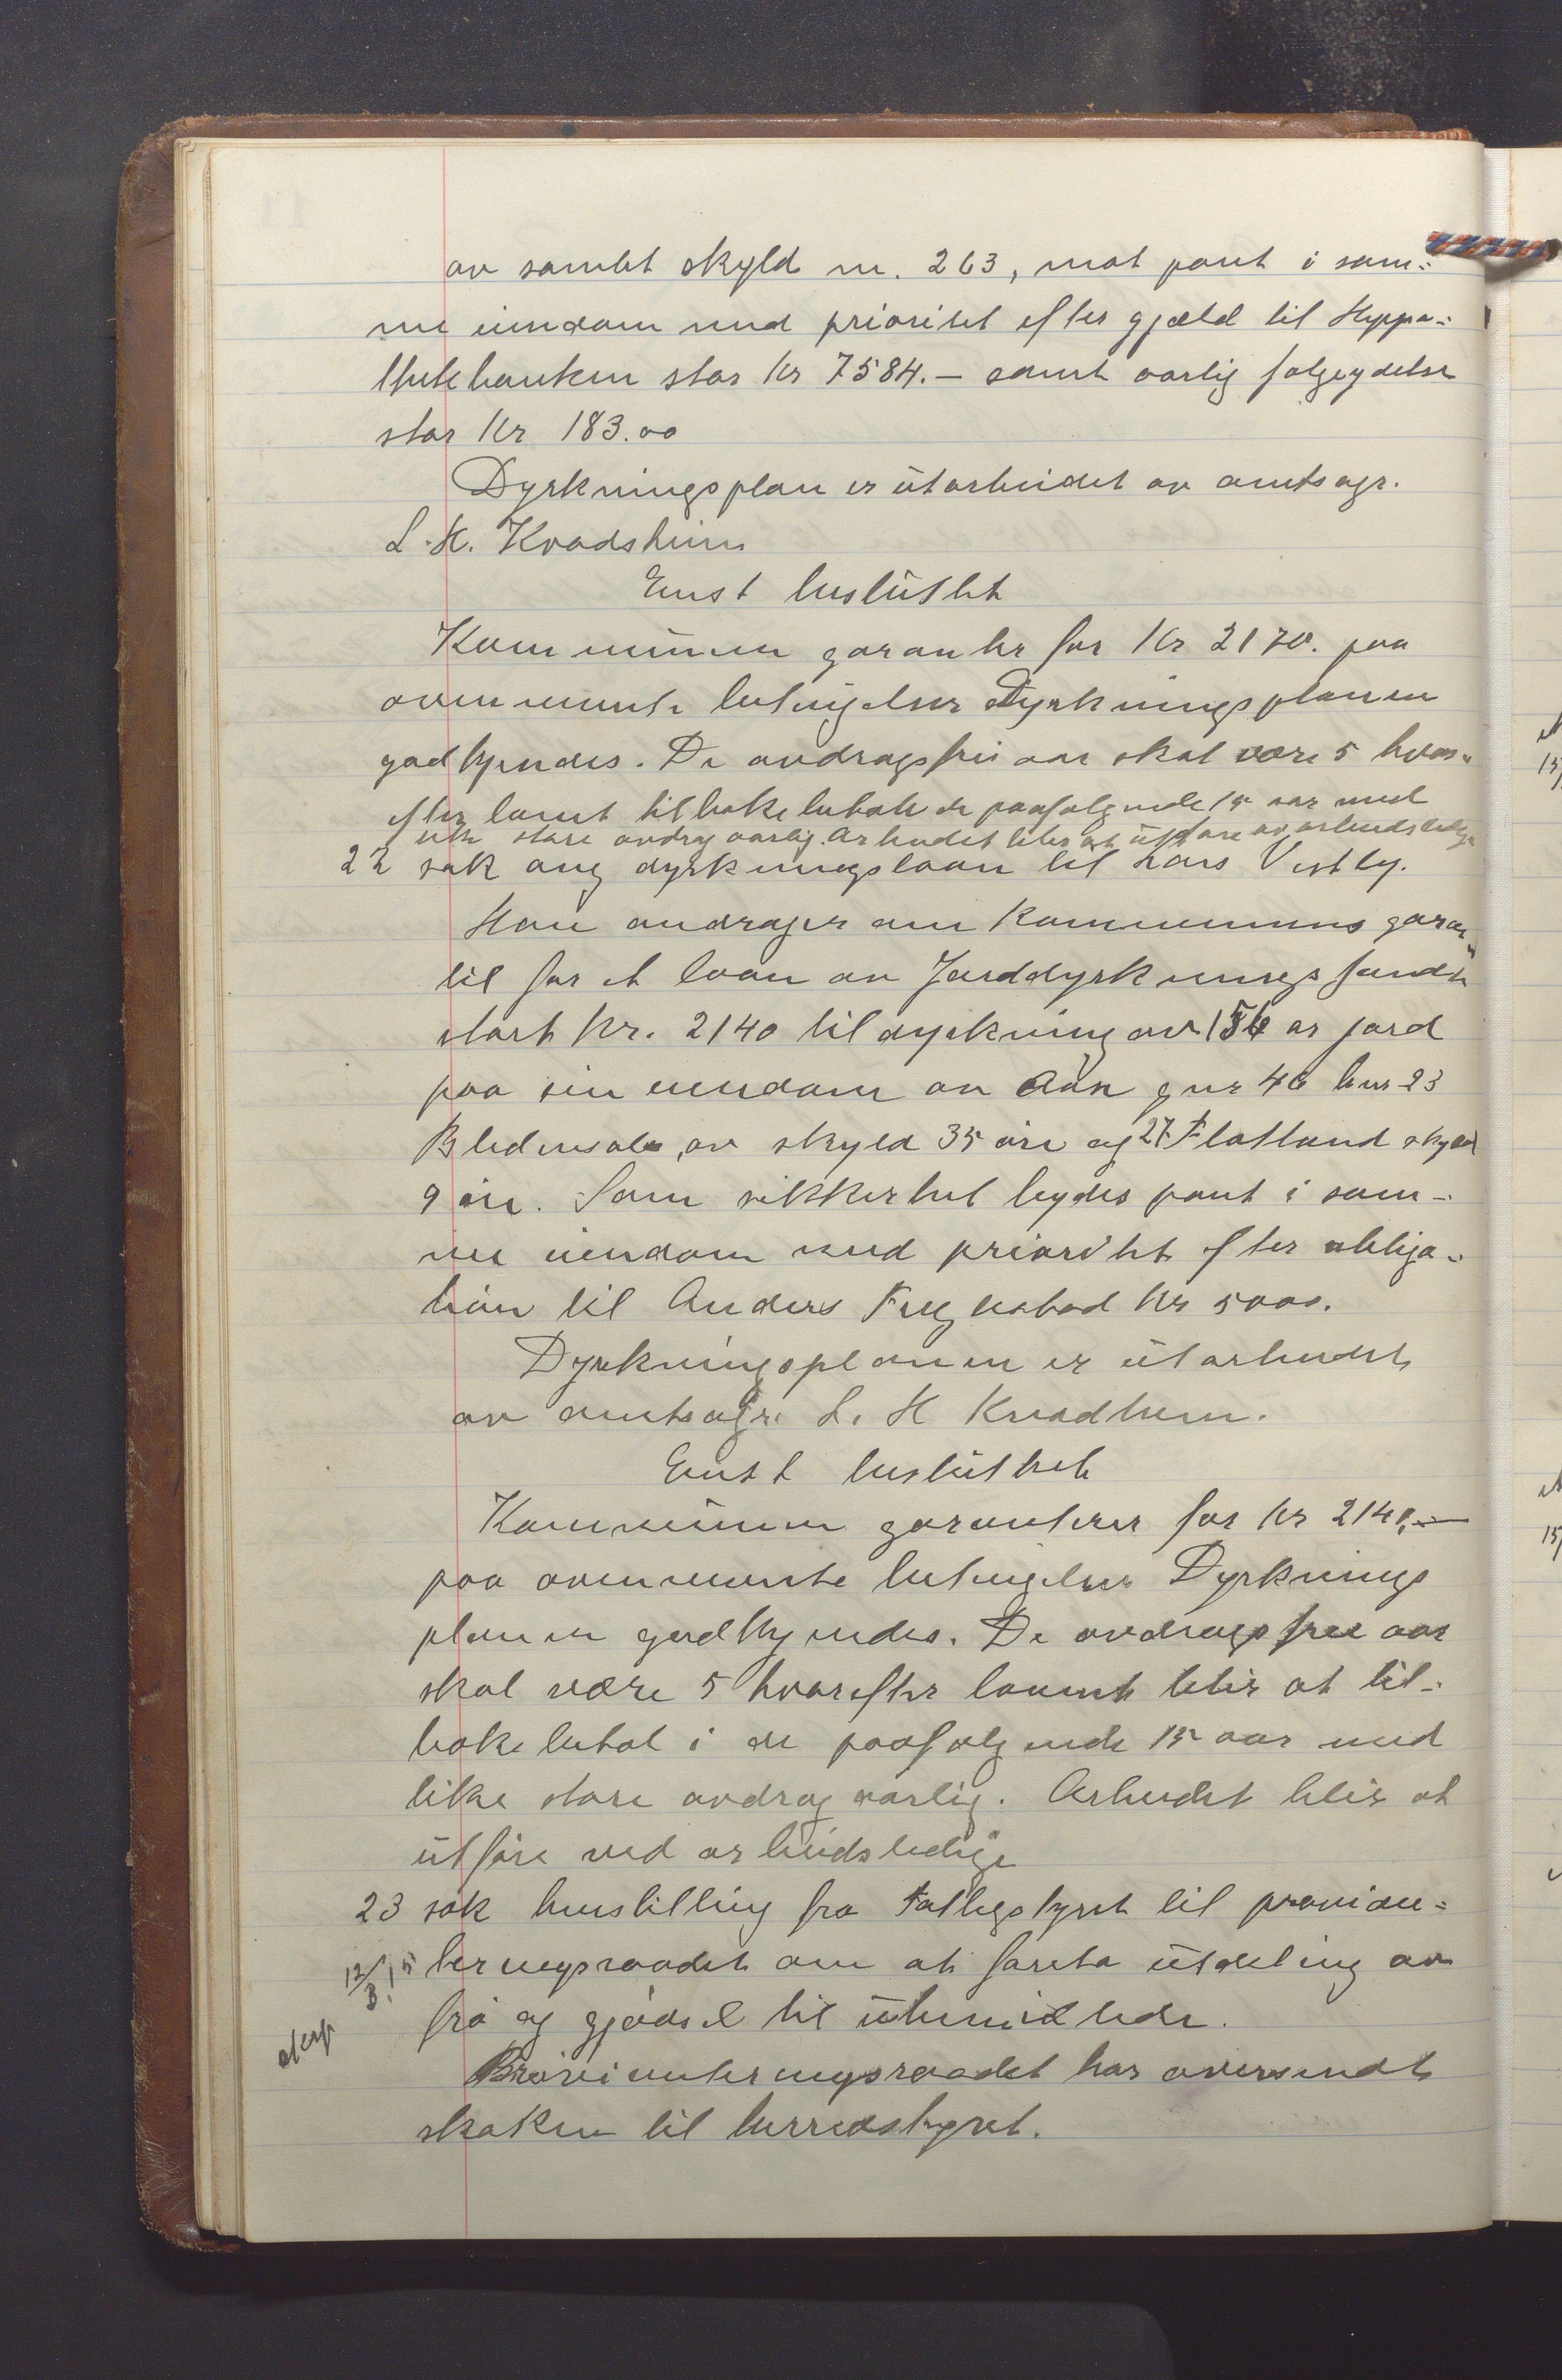 av samlet skyld m. 2.63, mot pant i sam-
me eiendom med prioritet efter gjæld til Hyppo-
thekbanken stor kr 7584.- samt aarlig følgeydelse
stor kr 183.00
Dyrkningsplan er utarbeidet av amtsagr.
L. H. Kvadsheim
Enst besluttet
Kommunen garanter for kr 2170. paa
ovennevnte betingelser Dyrkningsplanen
godkjendes. De avdragsfrie aar skal være 5 hvor-
efter laanet tilbakebetale de paafølgende 15 aar med
like store avdrag aarlig. Arbeidet blir at utføre av arbeidsledige
22 sak ang dyrkningslaan til Lars Vestly.
Han andrager om Kommunens garan-
til for et laan av Jorddyrkningsfondet
stort kr. 2140 til dyrkning av 156 ar jord
paa sin eiendom av Aan gnr 46 bnr 23
av skyld 35 øre og 27 Flatland skyld
9 øre. Som sikkerhet bydes pant i sam-
me eiendom med prioritet efter obliga-
tion til Anders kr 5000.
Dyrkningsplanen er utarbeidet
av amtsagr. L. H Kvadheim.
Enst besluttet
Kommunen garanterer for kr 2140,-
paa ovennevnte betingelser Dyrknings
planen godkjendes. De avdragsfree aar
skal være 5 hvorefter laanet blir at til-
bakebetal i de paafølgende 15 aar med
like store avdrag aarlig. Arbeidet blir at
utføre ved arbeidsledige
23 sak henstilling fra Fattigstyret til provian-
12/3.15 teringsraadet om at foreta utdeling av
frø og gjødsel til ubemidlede.
Provianteringsraadet har oversendt
skaken til herredstyret.